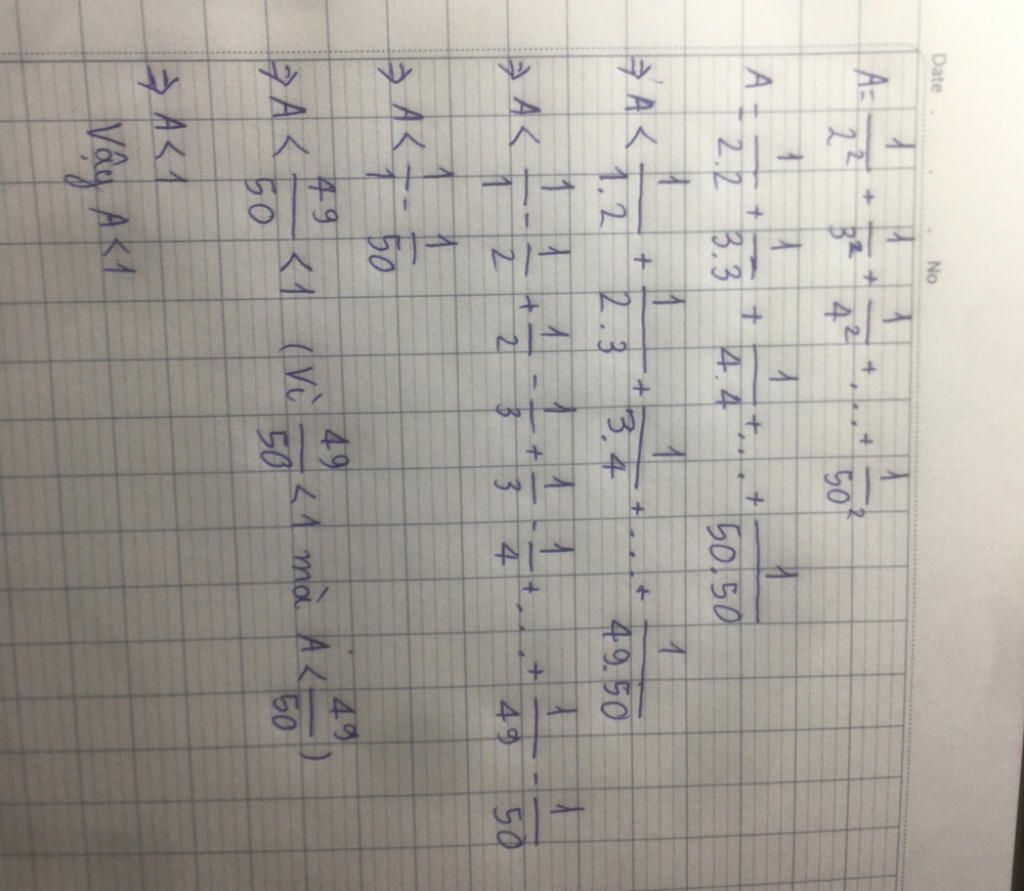 Date . No
A = 1/2² + 1/3² + 1/4² + ... + 1/50²
A = 1/2.2 + 1/3.3 + 1/4.4 + ... + 1/50.50
⇒ A < 1/1.2 + 1/2.3 + 1/3.4 + .... + 1/49.50
⇒ A < 1/1 - 1/2 + 1/2 - 1/3 + 1/3 - 1/4 + ... + 1/49 - 1/50
⇒ A < 1/1 - 1/50
⇒ A < 49/50 < 1 (Vì 49/50 < 1 mà A < 49/50)
⇒ A < 1
Vậy A < 1